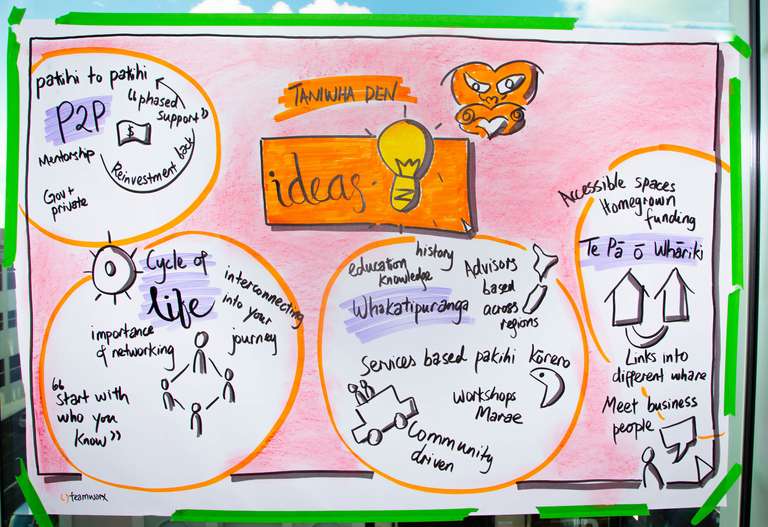 TANIWHA DEN
ideas
pakihi to pakihi
P2P
"phased
support"
$
Mentorship
Reinvestment back
Gov +
private
Cycle of
life
interconnecting
into your
journey
importance
of networking
"Start with
who you
know"
education
history
knowledge
Whakatipuranga
Advisors
based
across
regions
Services based pakihi
kōrero
workshops
Marae
Community
driven
Accessible spaces
Homegrown
funding
Te Pā ō Whāriki
Links into
different whare
Meet business
people
teamworx